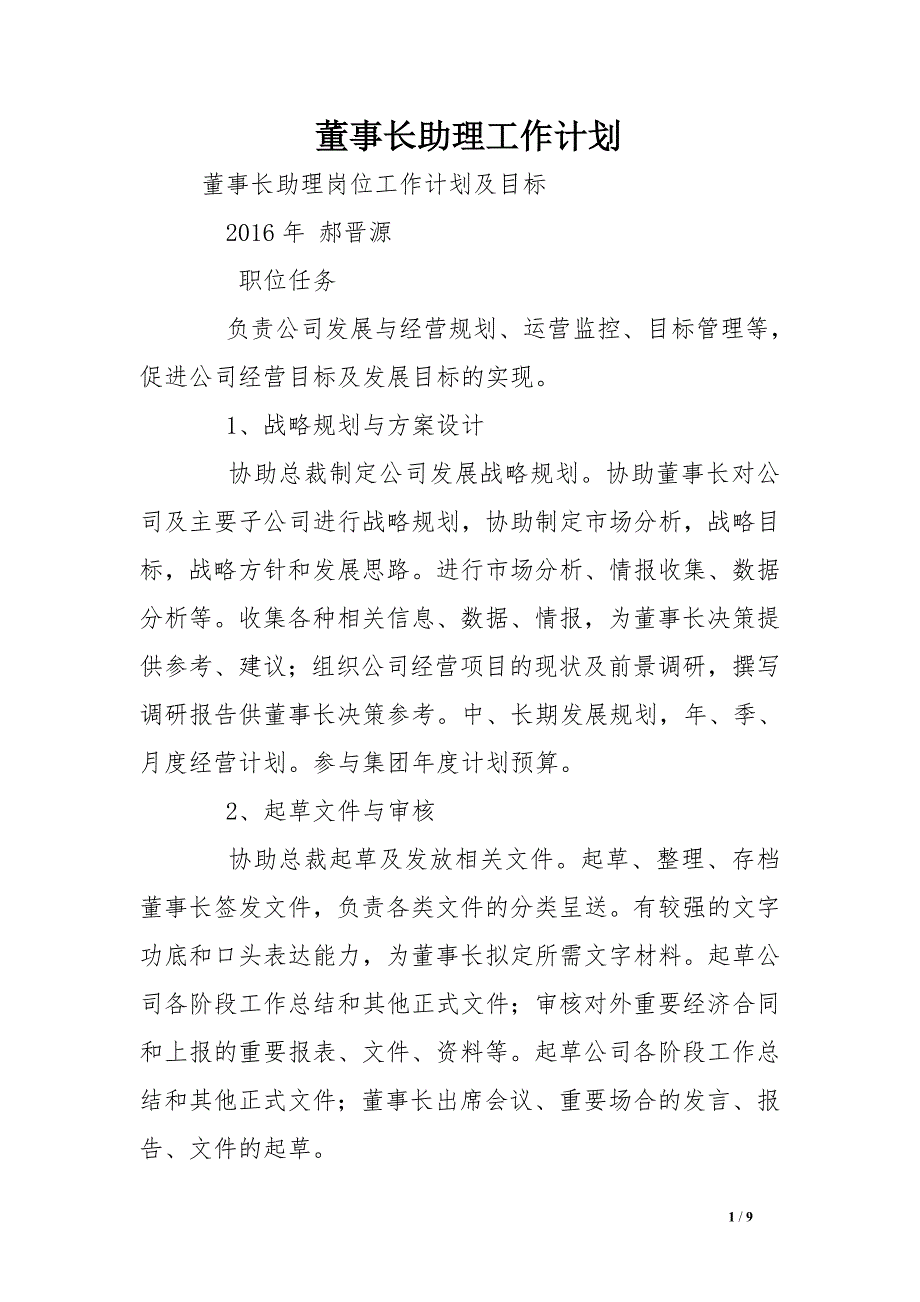 董事长助理工作计划
董事长助理岗位工作计划及目标
2016 年 郝晋源
职位任务
负责公司发展与经营规划、运营监控、目标管理等，
促进公司经营目标及发展目标的实现。
1、战略规划与方案设计
协助总裁制定公司发展战略规划。协助董事长对公
司及主要子公司进行战略规划，协助制定市场分析，战略目
标，战略方针和发展思路。进行市场分析、情报收集、数据
分析等。收集各种相关信息、数据、情报，为董事长决策提
供参考、建议；组织公司经营项目的现状及前景调研，撰写
调研报告供董事长决策参考。中、长期发展规划，年、季、
月度经营计划。参与集团年度计划预算。
2、起草文件与审核
协助总裁起草及发放相关文件。起草、整理、存档
董事长签发文件，负责各类文件的分类呈送。有较强的文字
功底和口头表达能力，为董事长拟定所需文字材料。起草公
司各阶段工作总结和其他正式文件；审核对外重要经济合同
和上报的重要报表、文件、资料等。起草公司各阶段工作总
结和其他正式文件；董事长出席会议、重要场合的发言、报
告、文件的起草。
1 / 9